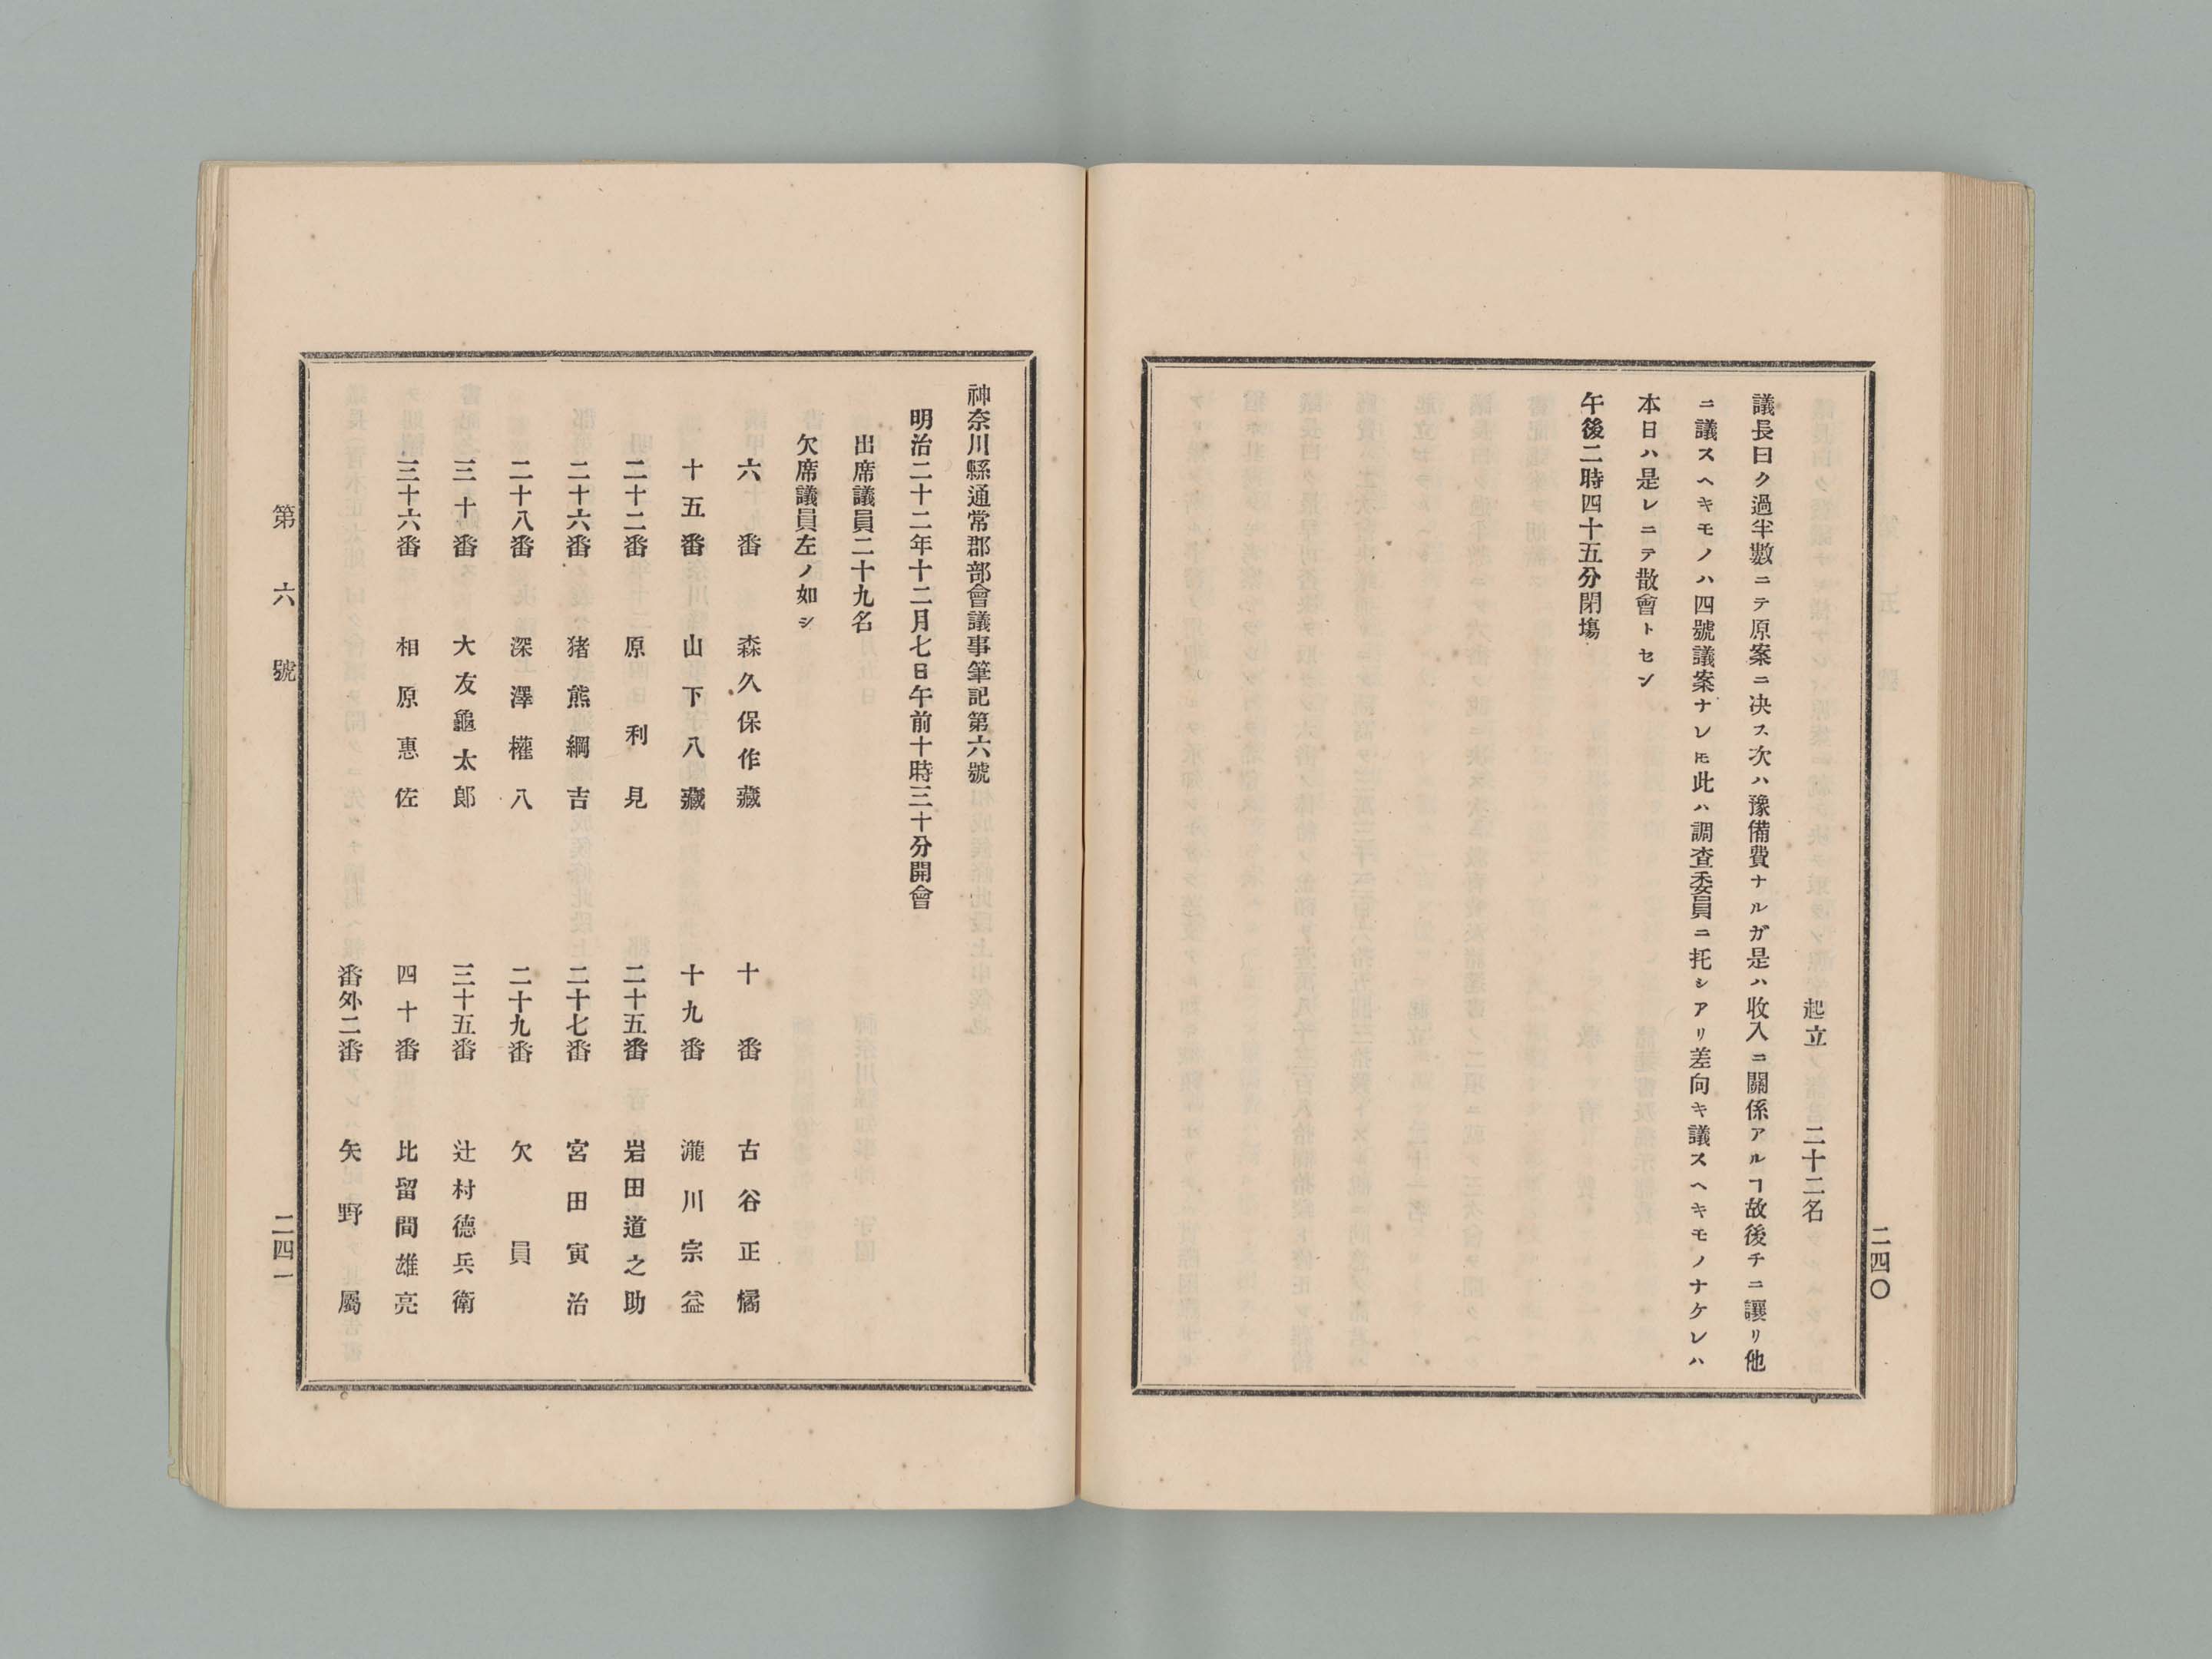 起立　二十二名
議長曰ク過半數ニテ原案ニ决ス次ハ豫備費ナルガ是ハ收入ニ關係アルヿ故後チニ讓リ他
ニ議スヘキモノハ四號議案ナレ𪜈此ハ調査委員ニ托シアリ差向キ議スヘキモノナケレハ
本日ハ是レニテ散會トセン
午後二時四十五分閉塲
二四〇
神奈川縣通常郡部會議事筆記第六號
明治二十二年十二月七日午前十時三十分開會
出席議員二十九名
欠席議員左ノ如シ
六番　森久保作藏　十番　古谷正橘
十五番　山下八藏　十九番　瀧川宗益
二十二番　原利見　二十五番　岩田道之助
二十六番　猪熊綱吉　二十七番　宮田寅治
二十八番　深澤權八　二十九番　欠員
三十番　大友龜太郎　三十五番　辻村德兵衛
三十六番　相原惠佐　四十番　比留間雄亮
番外二番　矢野屬
第六號
二四一